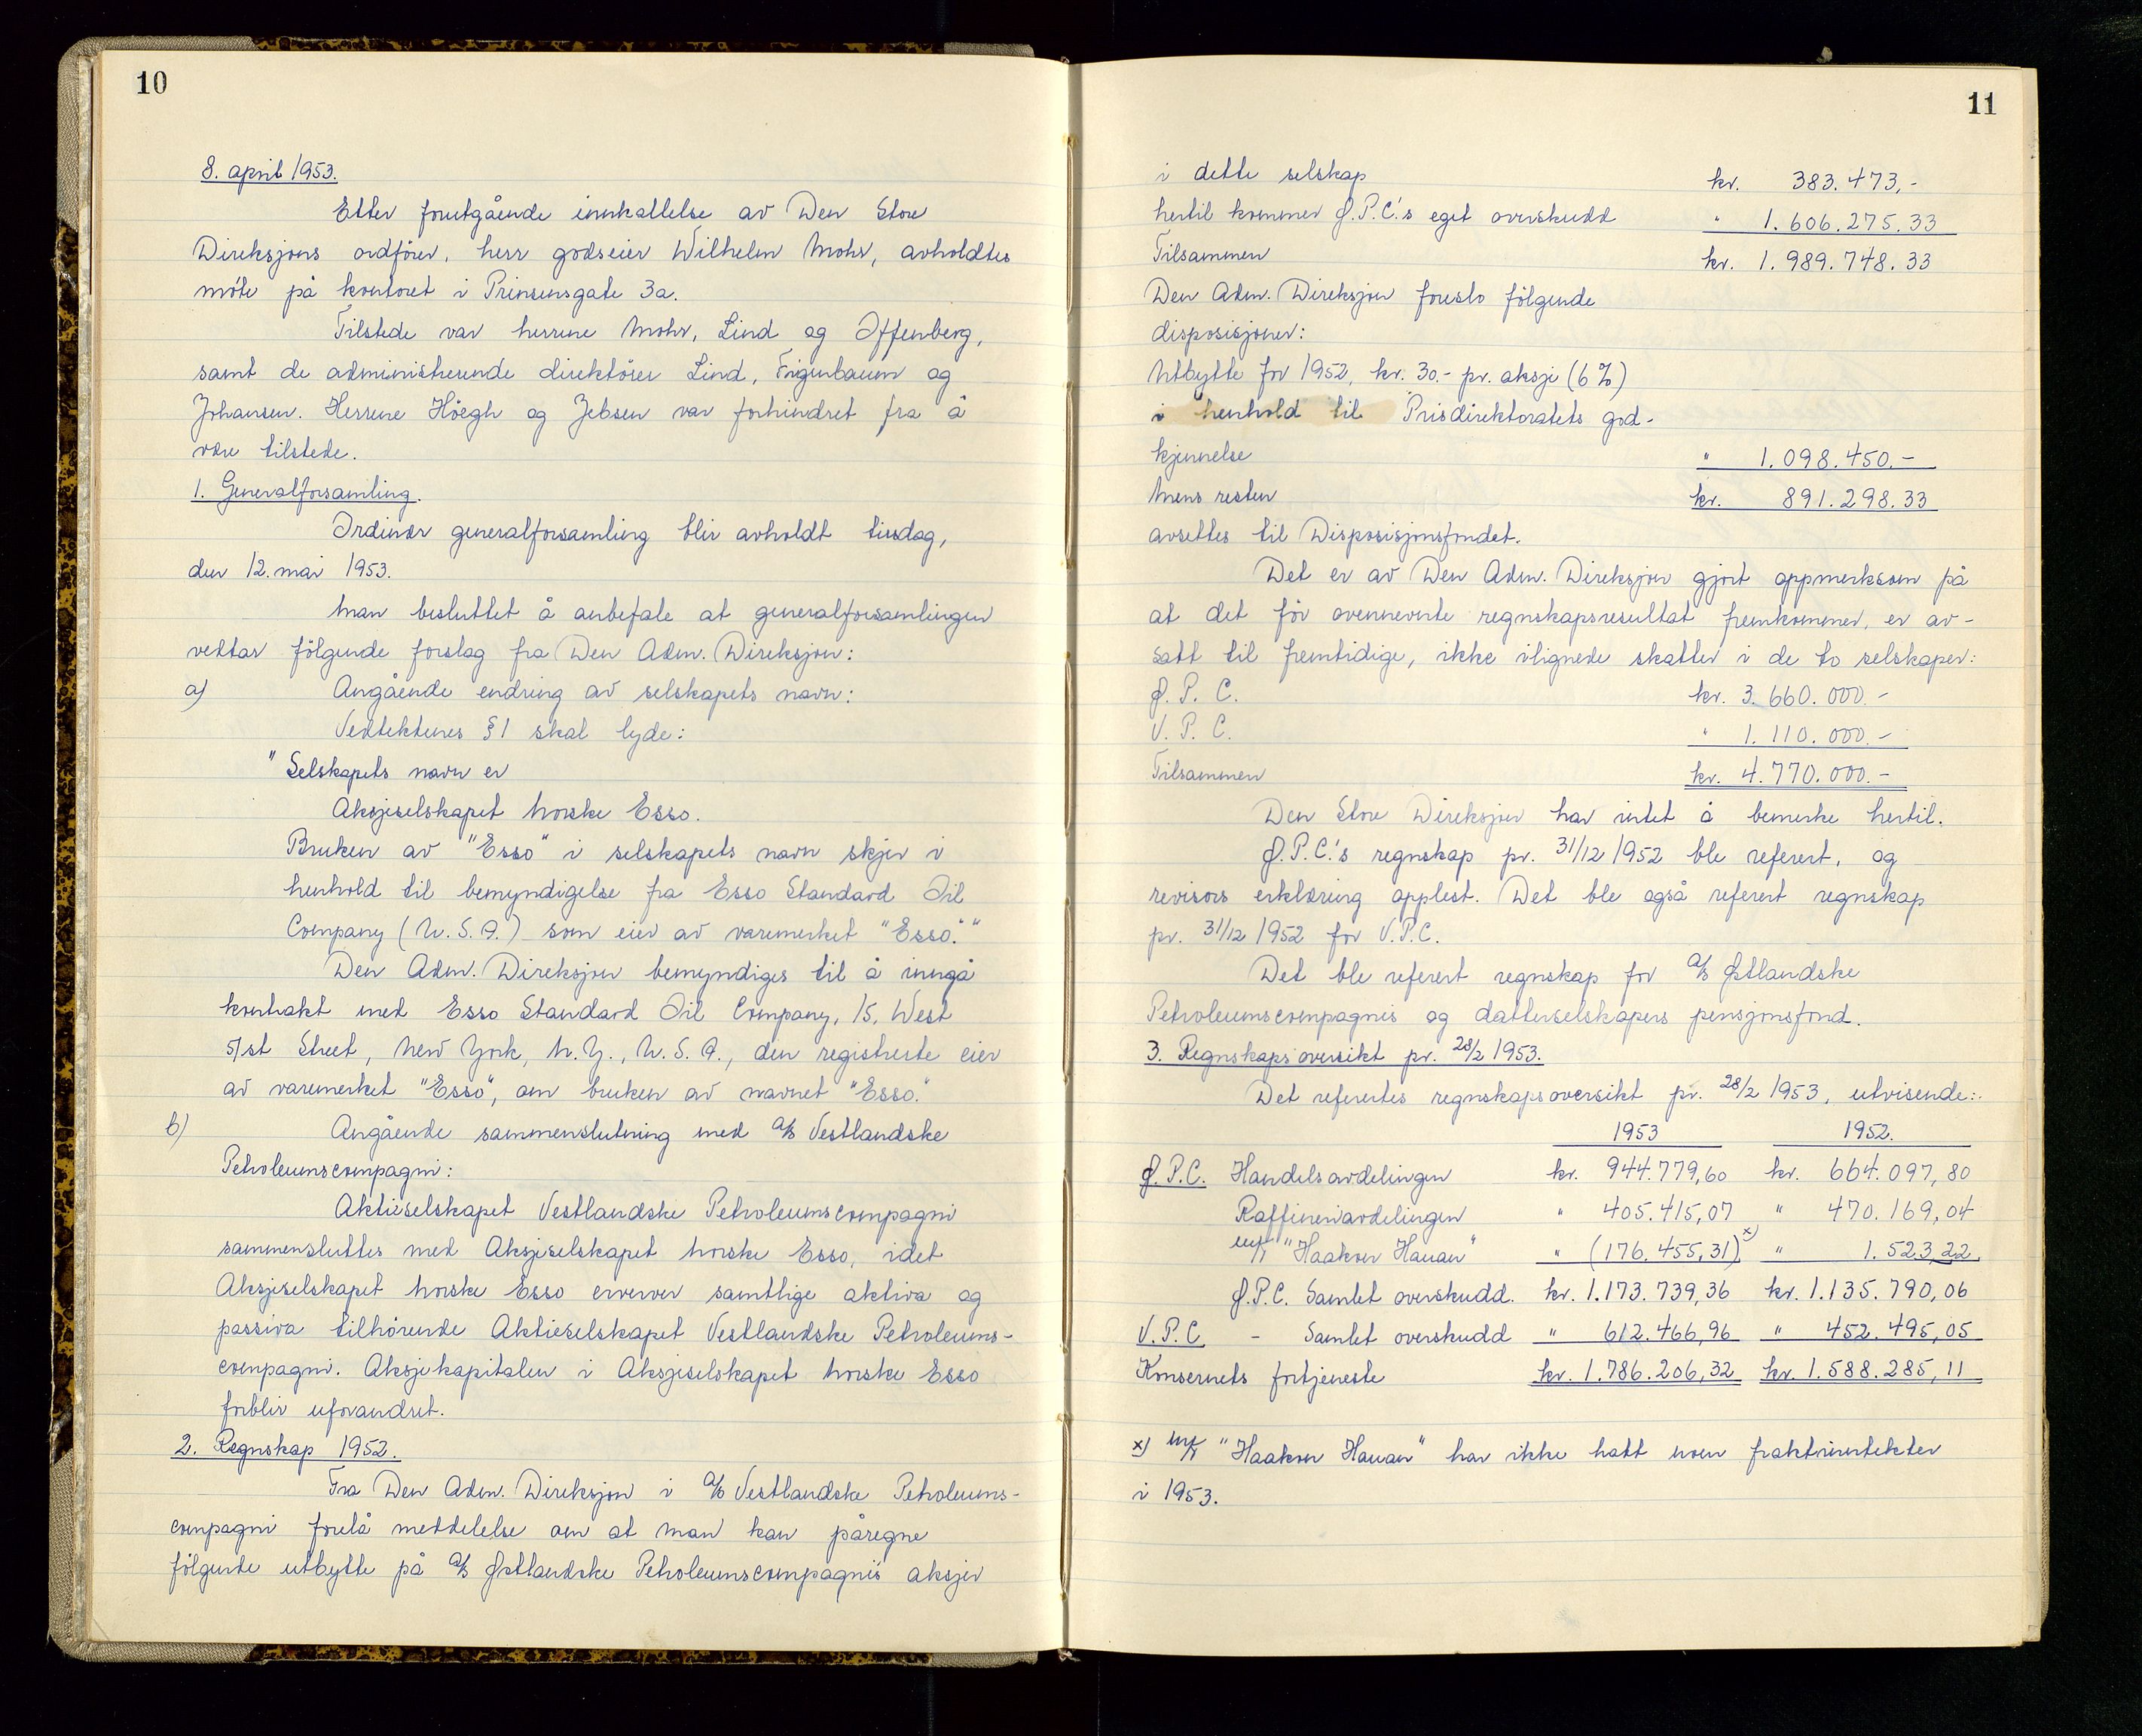 10
8. april 1953.
Etter forutgående innkallelse av Den Store
Direksjons ordförer, herr godseier Wilhelm Mohr, avholdtes
möte på kontoret i Prinsensgate 3a.
Tilstede var herrene Mohr, Lind og Offenberg,
samt de administrerende direktörer Lind, Figenbaum og
Johansen. Herrene Höegh og Jebsen var forhindret fra å
være tilstede.
1. Generalforsamling.
Ordinær generalforsamling blir avholdt tirsdag,
den 12. mai 1953.
Man besluttet å anbefale at generalforsamlingen
vedtar fölgende forslag fra Den Adm. Direksjon:
a) Angående endring av selskapets navn:
Vedtektenes §1 skal lyde:
"Selskapets navn er
Aksjeselskapet Norske Esso.
Bruken av "Esso" i selskapets navn skjer i
henhold til bemyndigelse fra Esso Standard Oil
Company (U.S.A.) som eier av varemerket "Esso.""
Den Adm. Direksjon bemyndiges til å inngå
kontrakt med Esso Standard Oil Company, 15, West
51st Street, New York, N.Y., U.S.A., den registrerte eier
av varemerket "Esso", om bruken av navnet "Esso."
b) Angående sammenslutning med A/S Vestlandske
Petroleumscompagni:
Aktieselskapet Vestlandske Petroleumscompagni
sammensluttes med Aksjeselskapet Norske Esso, idet
Aksjeselskapet Norske Esso erverver samtlige aktiva og
passiva tilhörende Aktieselskapet Vestlandske Petroleums-
compagni. Aksjekapitalen i Aksjeselskapet Norske Esso
forblir uforandret.
2. Regnskap 1952.
Fra Den Adm. Direksjon i A/S Vestlandske Petroleums-
compagni forelå meddelelse om at man kan påregne
fölgende utbytte på A/S Østlandske Petroleumscompagnis aksjer
11
i dette selskap kr. 383.473,-
hertil kommer Ø.P.C.'s eget overskudd " 1.606.275.33
Tilsammen kr. 1.989.748.33
Den Adm. Direksjon foreslo fölgende
disposisjoner:
Utbytte for 1952, kr. 30.- pr. aksje (6%)
i henhold til Prisdirektoratets god-
kjennelse " 1.098.450.-
Mens resten kr. 891.298.33
avsettes til Disposisjonsfondet.
Det er av Den Adm. Direksjon gjort oppmerksom på
at det för ovennevnte regnskapsresultat fremkommer, er av-
satt til fremtidige, ikke ilignede skatter i de to selskaper:
Ø.P.C. kr. 3.660.000.-
V.P.C. " 1.110.000.-
Tilsammen kr. 4.770.000.-
Den Store Direksjon har intet å bemerke hertil.
Ø.P.C.'s regnskap pr. 31/12 1952 ble referert, og
revisors erklæring opplest. Det ble også referert regnskap
pr. 31/12 1952 for V.P.C.
Det ble referert regnskap for A/S Østlandske
Petroleumscompagnis og datterselskapers pensjonsfond.
3. Regnskapsoversikt pr. 28/2 1953.
Det referertes regnskapsoversikt pr. 28/2 1953, utvisende:
1953 1952.
Ø.P.C. Handelsavdelingen kr. 944.779,60 kr. 664.097,80
Raffineriavdelingen " 405.415,07 " 470.169,04
M/T "Haakon Hauan" " (176.455,31) x) " 1.523,22
Ø.P.C. Samlet overskudd. kr. 1.173.739,36 kr. 1.135.790,06
V.P.C. - Samlet overskudd " 612.466,96 " 452.495,05
Konsernets fortjeneste kr. 1.786.206,32 kr. 1.588.285,11
x) M/T "Haakon Hauan" har ikke hatt noen fraktinntekter
i 1953.